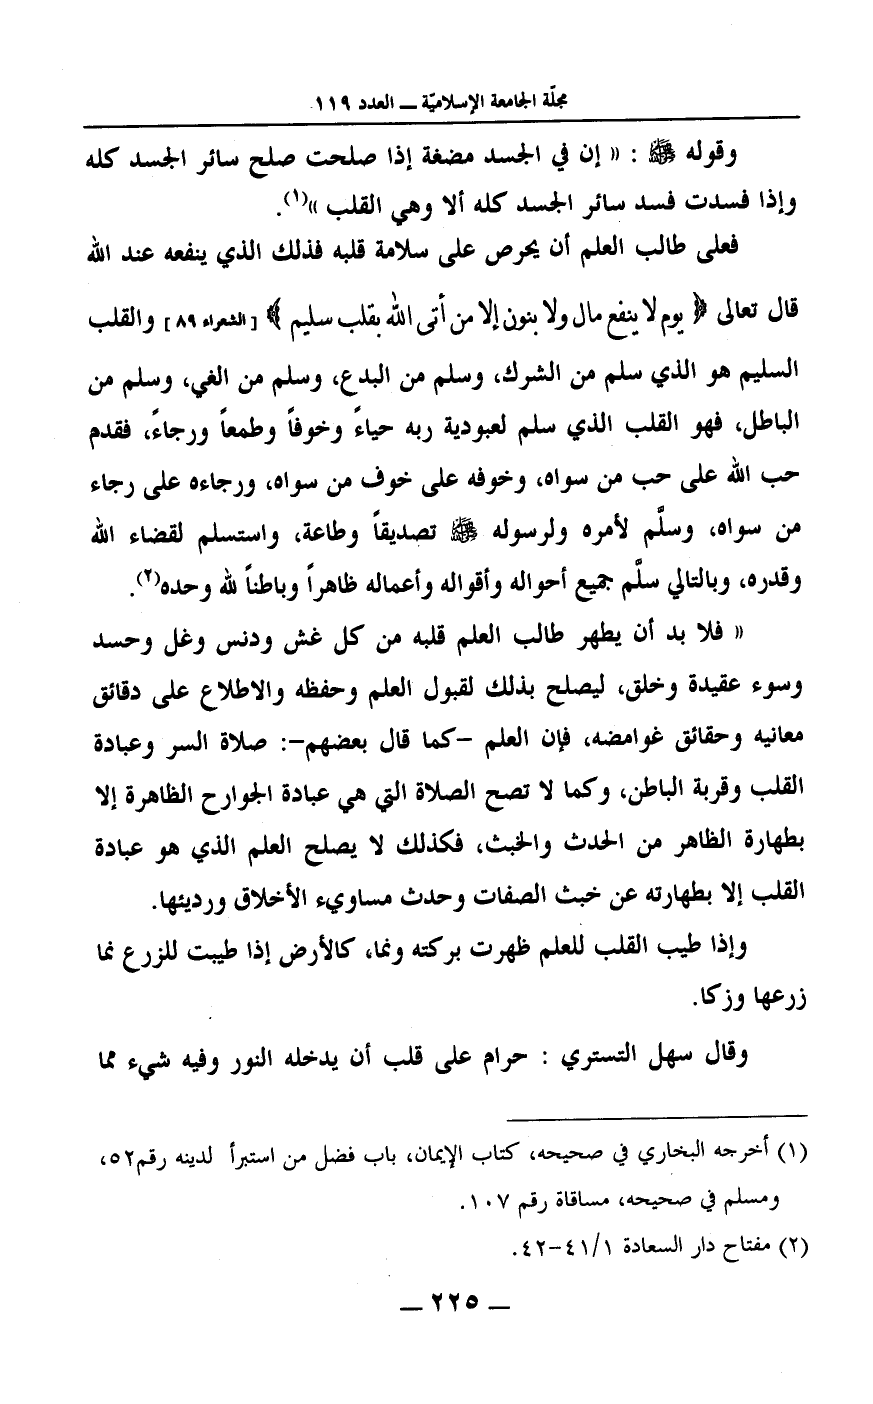 مجلّة الجامعة الإسلاميّة ــ العدد ١١٩
وقوله ﷺ : « إن في الجسد مضغة إذا صلحت صلح سائر الجسد كله
وإذا فسدت فسد سائر الجسد كله ألا وهي القلب »(١).
فعلى طالب العلم أن يحرص على سلامة قلبه فذلك الذي ينفعه عند الله
قال تعالى ﴿ يوم لا ينفع مال ولا بنون إلا من أتى الله بقلب سليم ﴾ [ الشعراء ٨٩ ] والقلب
السليم هو الذي سلم من الشرك، وسلم من البدع، وسلم من الغي، وسلم من
الباطل، فهو القلب الذي سلم لعبودية ربه حياءً وخوفاً وطمعاً ورجاءً، فقدم
حب الله على حب من سواه، وخوفه على خوف من سواه، ورجاءه على رجاء
من سواه، وسلَّم لأمره ولرسوله ﷺ تصديقاً وطاعة، واستسلم لقضاء الله
وقدره، وبالتالي سلَّم جميع أحواله وأقواله وأعماله ظاهراً وباطناً لله وحده(٢).
« فلا بد أن يطهر طالب العلم قلبه من كل غش ودنس وغل وحسد
وسوء عقيدة وخلق، ليصلح بذلك لقبول العلم وحفظه والاطلاع على دقائق
معانيه وحقائق غوامضه، فإن العلم –كما قال بعضهم–: صلاة السر وعبادة
القلب وقربة الباطن، وكما لا تصح الصلاة التي هي عبادة الجوارح الظاهرة إلا
بطهارة الظاهر من الحدث والخبث، فكذلك لا يصلح العلم الذي هو عبادة
القلب إلا بطهارته عن خبث الصفات وحدث مساويء الأخلاق ورديئها.
وإذا طيب القلب للعلم ظهرت بركته ونما، كالأرض إذا طيبت للزرع نما
زرعها وزكا.
وقال سهل التستري : حرام على قلب أن يدخله النور وفيه شيء مما
(١) أخرجه البخاري في صحيحه، كتاب الإيمان، باب فضل من استبرأ لدينه رقم٥٢،
ومسلم في صحيحه، مساقاة رقم ١٠٧.
(٢) مفتاح دار السعادة ٤١/١–٤٢.
ــ ٢٢٥ ــ